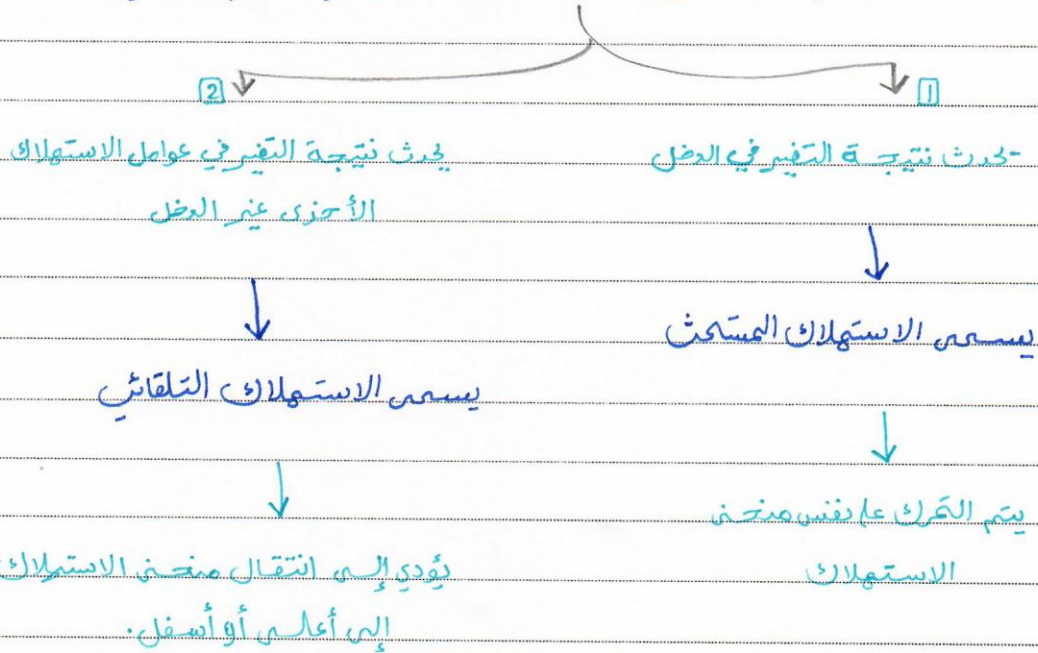 1
يحدث نتيجة التغير في الدخل
يسمى الاستهلاك المستحث
يتم التحرك على نفس منحنى
الاستهلاك
2
يحدث نتيجة التغير في عوامل الاستهلاك
الأخرى غير الدخل
يسمى الاستهلاك التلقائي
يؤدي إلى انتقال منحنى الاستهلاك
إلى أعلى أو أسفل.